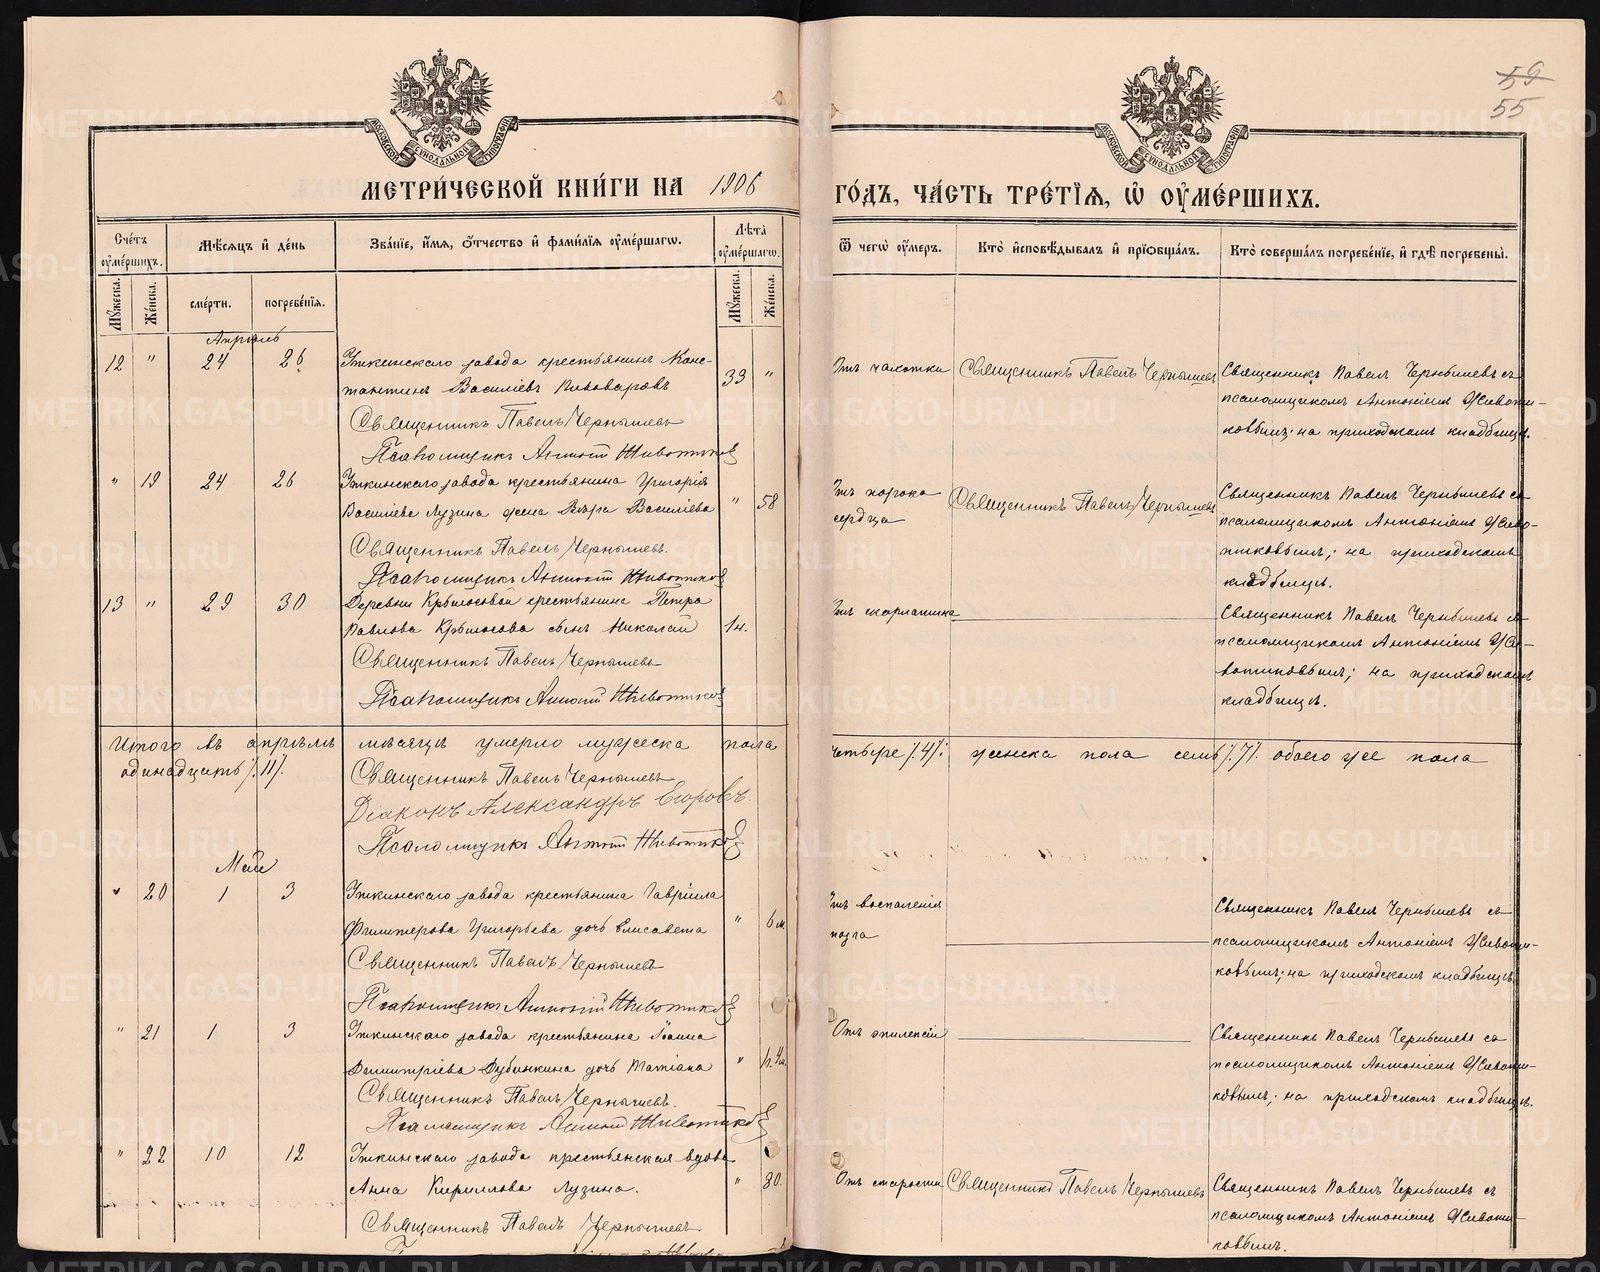 59
55
МОСКОВСКОЙ СѴНОДАЛЬНОЙ ТИПОГРАФІИ
МОСКОВСКОЙ СѴНОДАЛЬНОЙ ТИПОГРАФІИ
МЕТРИ́ЧЕСКОЙ КНИ́ГИ НА 1906 ГО́ДЪ, ЧА́СТЬ ТРЕ́ТІѦ, Ѽ ОУ҆МЕ́РШИХЪ.
Сче́тъ оу҆ме́ршихъ.
Мѣ́сѧцъ и҆ де́нь
Зва́нїе, и҆́мѧ, ѻ҆́тчество и҆ фами́лїѧ оу҆ме́ршагѡ.
Лѣ́та оу҆ме́ршагѡ.
Ѿ чегѡ̀ оу҆́меръ.
Кто̀ и҆сповѣ́дывалъ и҆ прїѡбща́лъ.
Кто̀ соверша́лъ погребе́нїе, и҆ гдѣ̀ погребены̀.
Мꙋ́жеска.
Же́нска.
сме́рти.
погребе́нїѧ.
Мꙋ́жеска.
Же́нска.
Апрѣль
12 " 24 26 Уткинскаго завода крестьянинъ Конс-
тантинъ Василіевъ Пивоваровъ 33 "
Священникъ Павелъ Чернышевъ
Псаломщикъ Антоній Животиковъ
Отъ чахотки Священникъ Павелъ Чернышевъ Священникъ Павелъ Чернышевъ съ
псаломщикомъ Антоніемъ Животи-
ковымъ; на приходскомъ кладбищѣ.
" 19 24 26 Уткинскаго завода крестьянина Григорія
Василіева Лузина жена Вѣра Василіева " 58
Священникъ Павелъ Чернышевъ.
Псаломщикъ Антоній Животиковъ
Отъ порока
сердца
Священникъ Павелъ Чернышевъ
Священникъ Павелъ Чернышевъ съ
псаломщикомъ Антоніемъ Живо-
тиковымъ; на приходскомъ
кладбищѣ.
13 " 29 30 Деревни Крылосовой крестьянина Петра
Павлова Крылосова сынъ Николай 1н.
Священникъ Павелъ Чернышевъ
Псаломщикъ Антоній Животиковъ
Отъ скарлатины
Священникъ Павелъ Чернышевъ съ
псаломщикомъ Антоніемъ Жи-
вотиковымъ; на приходскомъ
кладбищѣ.
Итого въ апрѣлѣ мѣсяцѣ умерло мужеска пола четыре /.4/. женска пола семь /.7/. обоего же пола
одинадцать /.11/.
Священникъ Павелъ Чернышевъ
Діаконъ Александръ Егоровъ.
Псаломщикъ Антоній Животиковъ
Май
" 20 1 3 Уткинскаго завода крестьянина Гавріила
Филитерова Григорьева дочь Елисавета " 6м
Священникъ Павелъ Чернышевъ
Псаломщикъ Антоній Животиковъ
Отъ воспаленія
мозга
Священникъ Павелъ Чернышевъ съ
псаломщикомъ Антоніемъ Животи-
ковымъ; на приходскомъ кладбищѣ
" 21 1 3 Уткинскаго завода крестьянина Іоанна
Димитріева Дубинкина дочь Татіана "
Священникъ Павелъ Чернышевъ.
Псаломщикъ Антоній Животиковъ
Отъ эпилепсіи
Священникъ Павелъ Чернышевъ съ
псаломщикомъ Антоніемъ Животи-
ковымъ; на приходскомъ кладбищѣ.
" 22 10 12 Уткинскаго завода крестьянская вдова
Анна Кириллова Лузина. " 80.
Священникъ Павелъ Чернышевъ.
Отъ старости Священникъ Павелъ Чернышевъ Священникъ Павелъ Чернышевъ съ
псаломщикомъ Антоніемъ Животи-
ковымъ.
METRIKI.GASO-URAL.RU